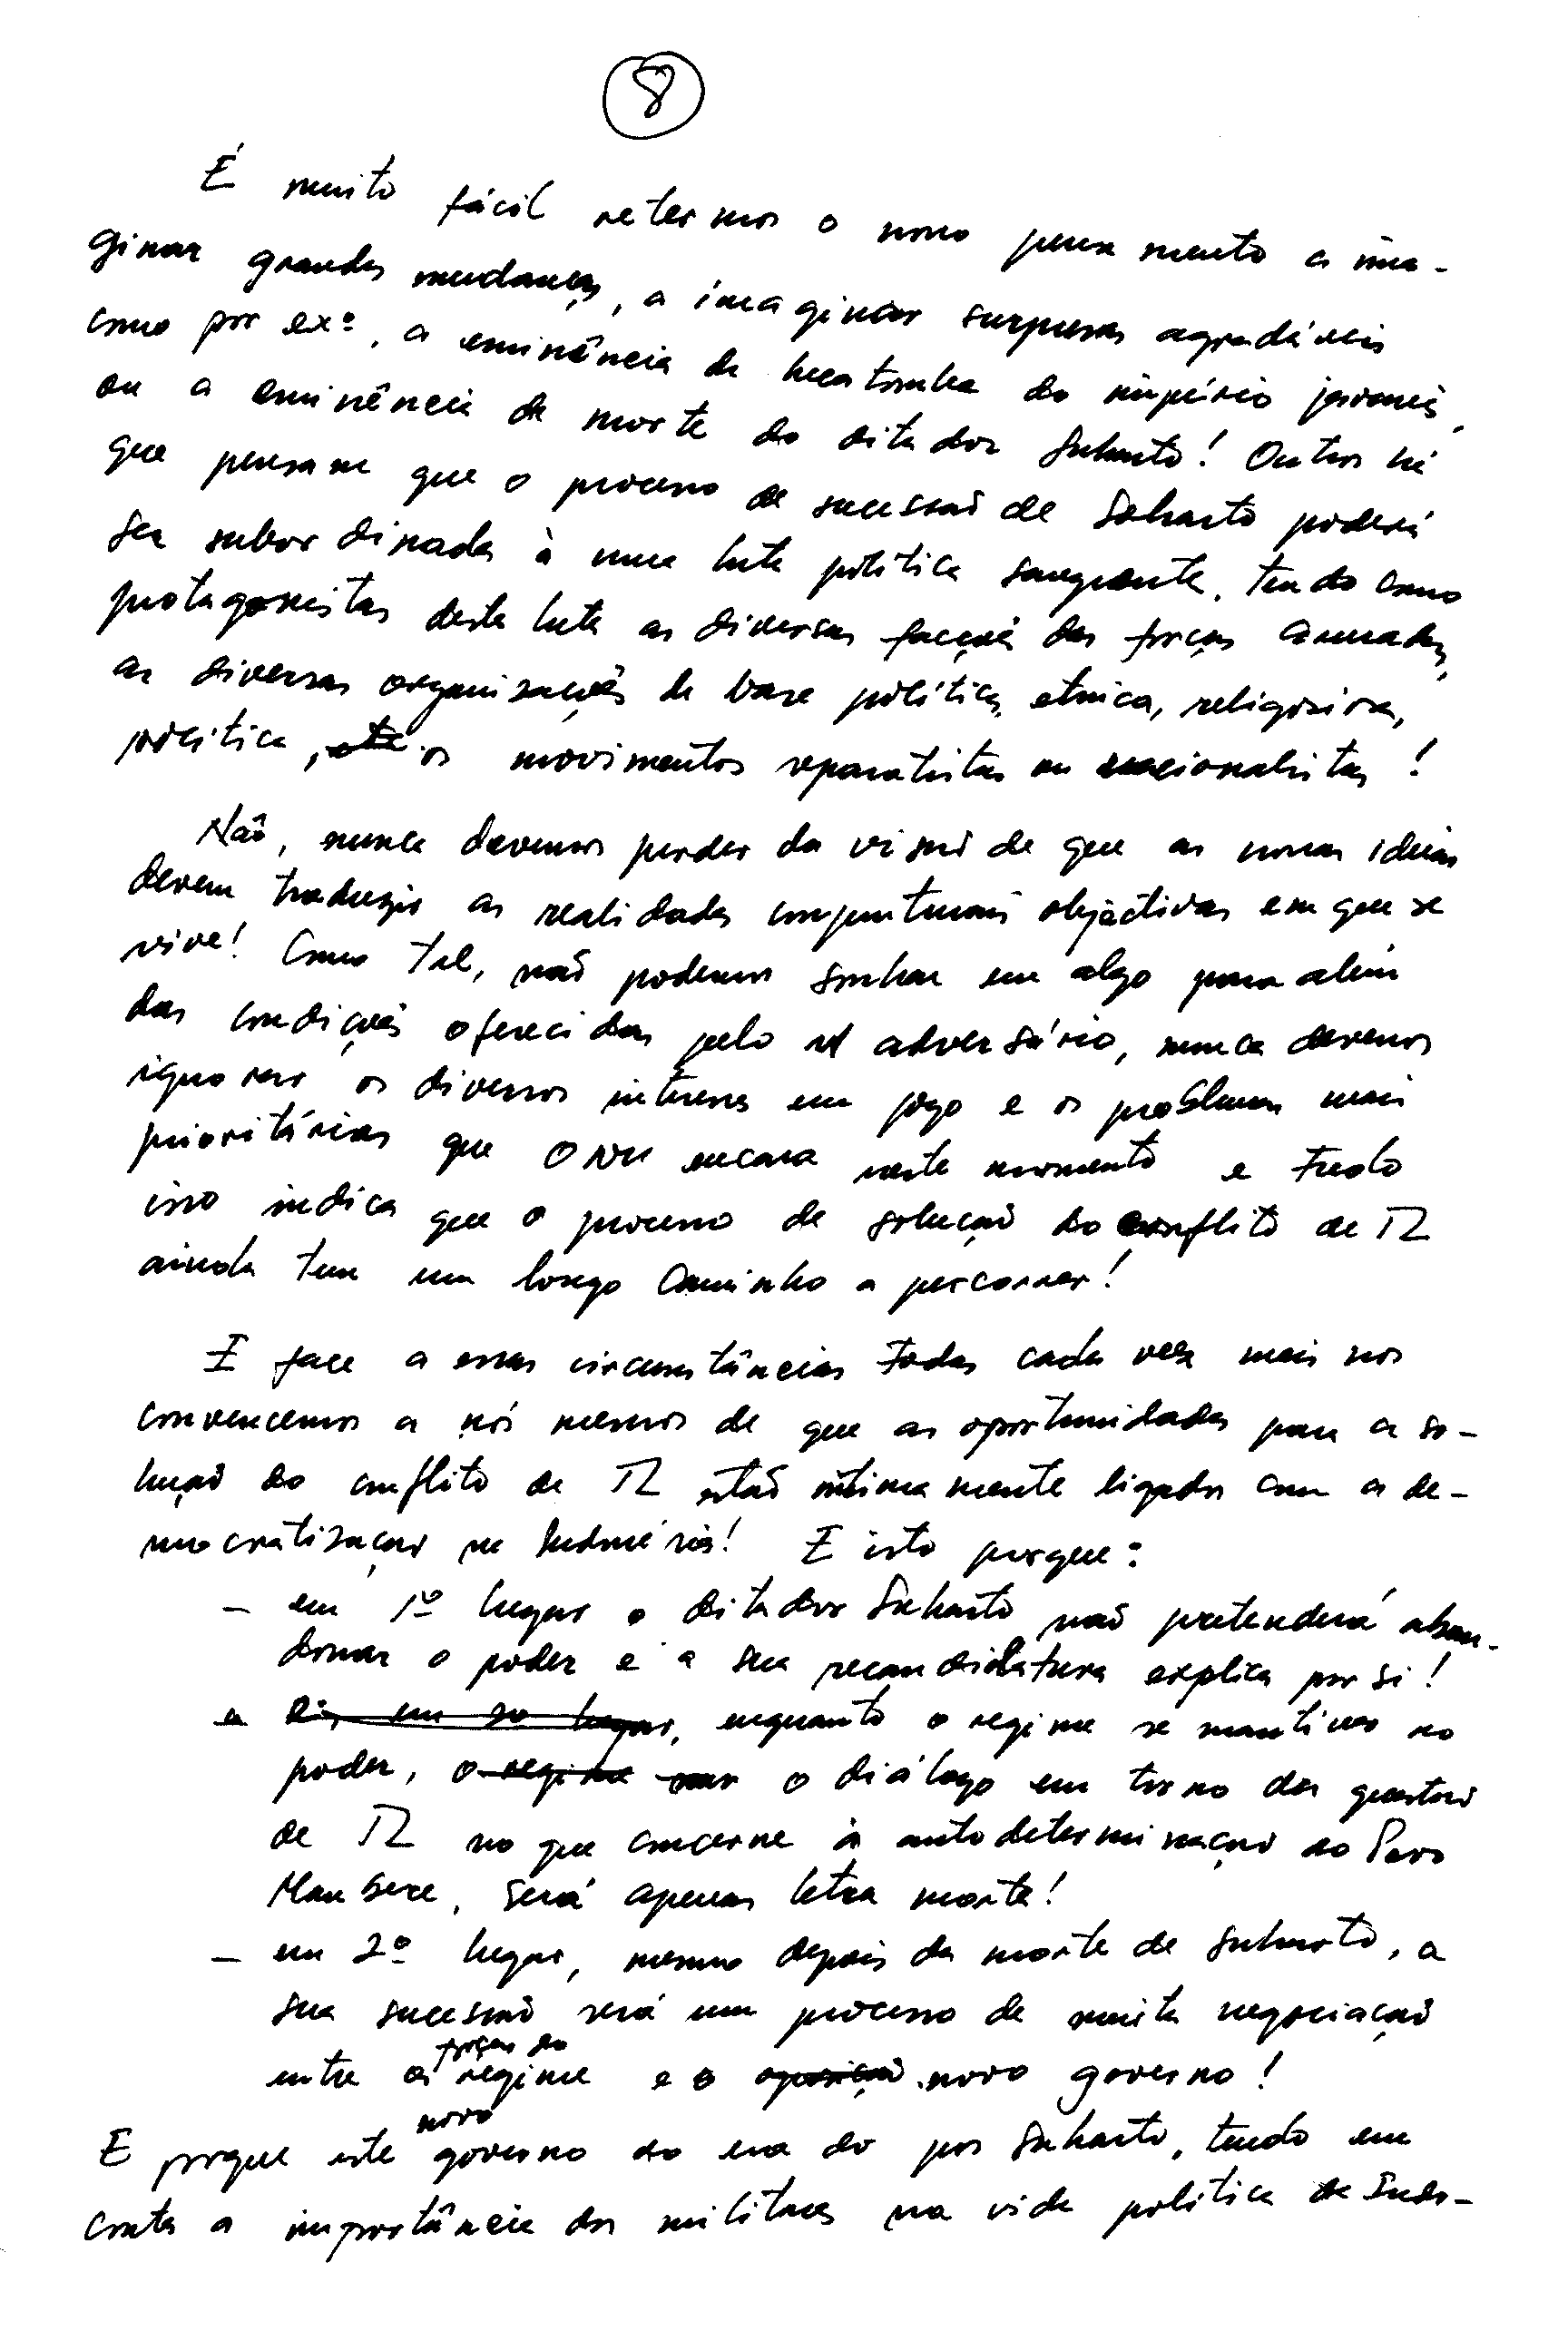 8
É muito fácil retermos o nosso pensamento a ima-
ginar grandes mudanças, a imaginar surpresas agradáveis
como por exº, a eminência da hecatombe do império javanês,
ou a eminência da morte do ditador Suharto! Outros há
que pensam que o processo de sucessão de Suharto poderá
ser subordinada à uma luta política sangrenta, tendo como
protagonistas desta luta as diversas facções das forças armadas,
as diversas organizações de base política, étnica, religiosa,
política, etc os movimentos separatistas ou nacionalistas!
Não, nunca devemos perder da visão de que as nossas ideias
devem traduzir as realidades conjunturais objectivas em que se
vive! Como tal, não podemos sonhar em algo para além
das condições oferecidas pelo adversário, nunca devemos
ignorar os diversos interesses em jogo e os problemas mais
prioritários que ONU encara neste momento e tudo
isso indica que o processo de solução do conflito de TL
ainda tem um longo caminho a percorrer!
E face a essas circunstâncias todas cada vez mais nos
convencemos a nós mesmos de que as oportunidades para a so-
lução do conflito de TL estão intimamente ligados com a de-
mocratização na Indonésia! E isto porque:
- em 1º lugar o ditador Suharto não pretenderá aban-
donar o poder e a sua recandidatura explica por si!
e em 2º lugar, enquanto o regime se mantiver no
poder, o regime o diálogo em torno da questão
de TL no que concerne à autodeterminação do Povo
Maubere, será apenas letra morta!
- em 2º lugar, mesmo depois da morte de Suharto, a
sua sucessão será um processo de muita negociação
forças do
entre as regime e o oposição novo governo!
novo
E porque este governo da era do pos Suharto, tendo em
conta a importância dos militares na vida política da Indo-